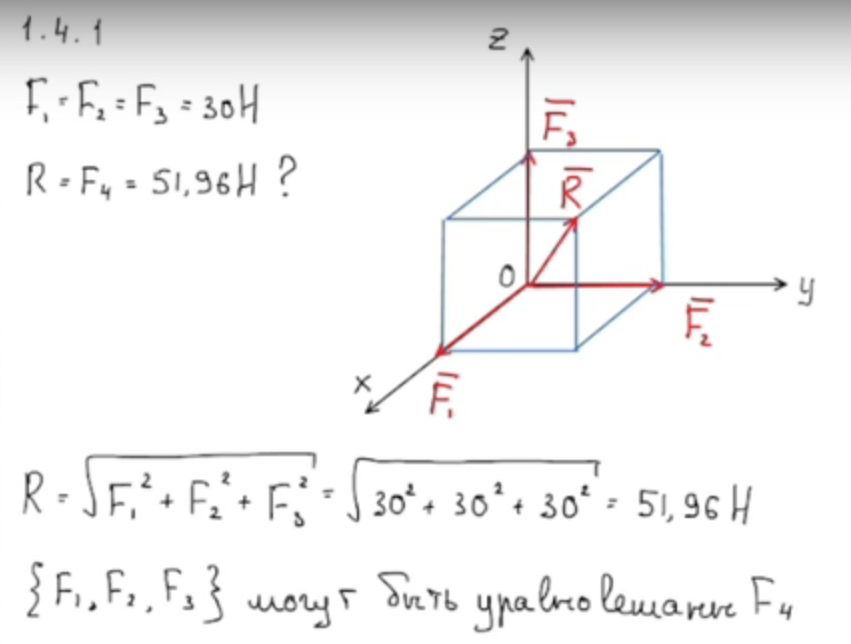 1.4.1
F₁ = F₂ = F₃ = 30H
R = F₄ = 51,96H ?
z
F̅₃
R̅
O
y
F̅₂
x
F̅₁
R = √F₁² + F₂² + F₃² = √30² + 30² + 30² = 51,96 H
{F₁, F₂, F₃} могут быть уравновешание F₄